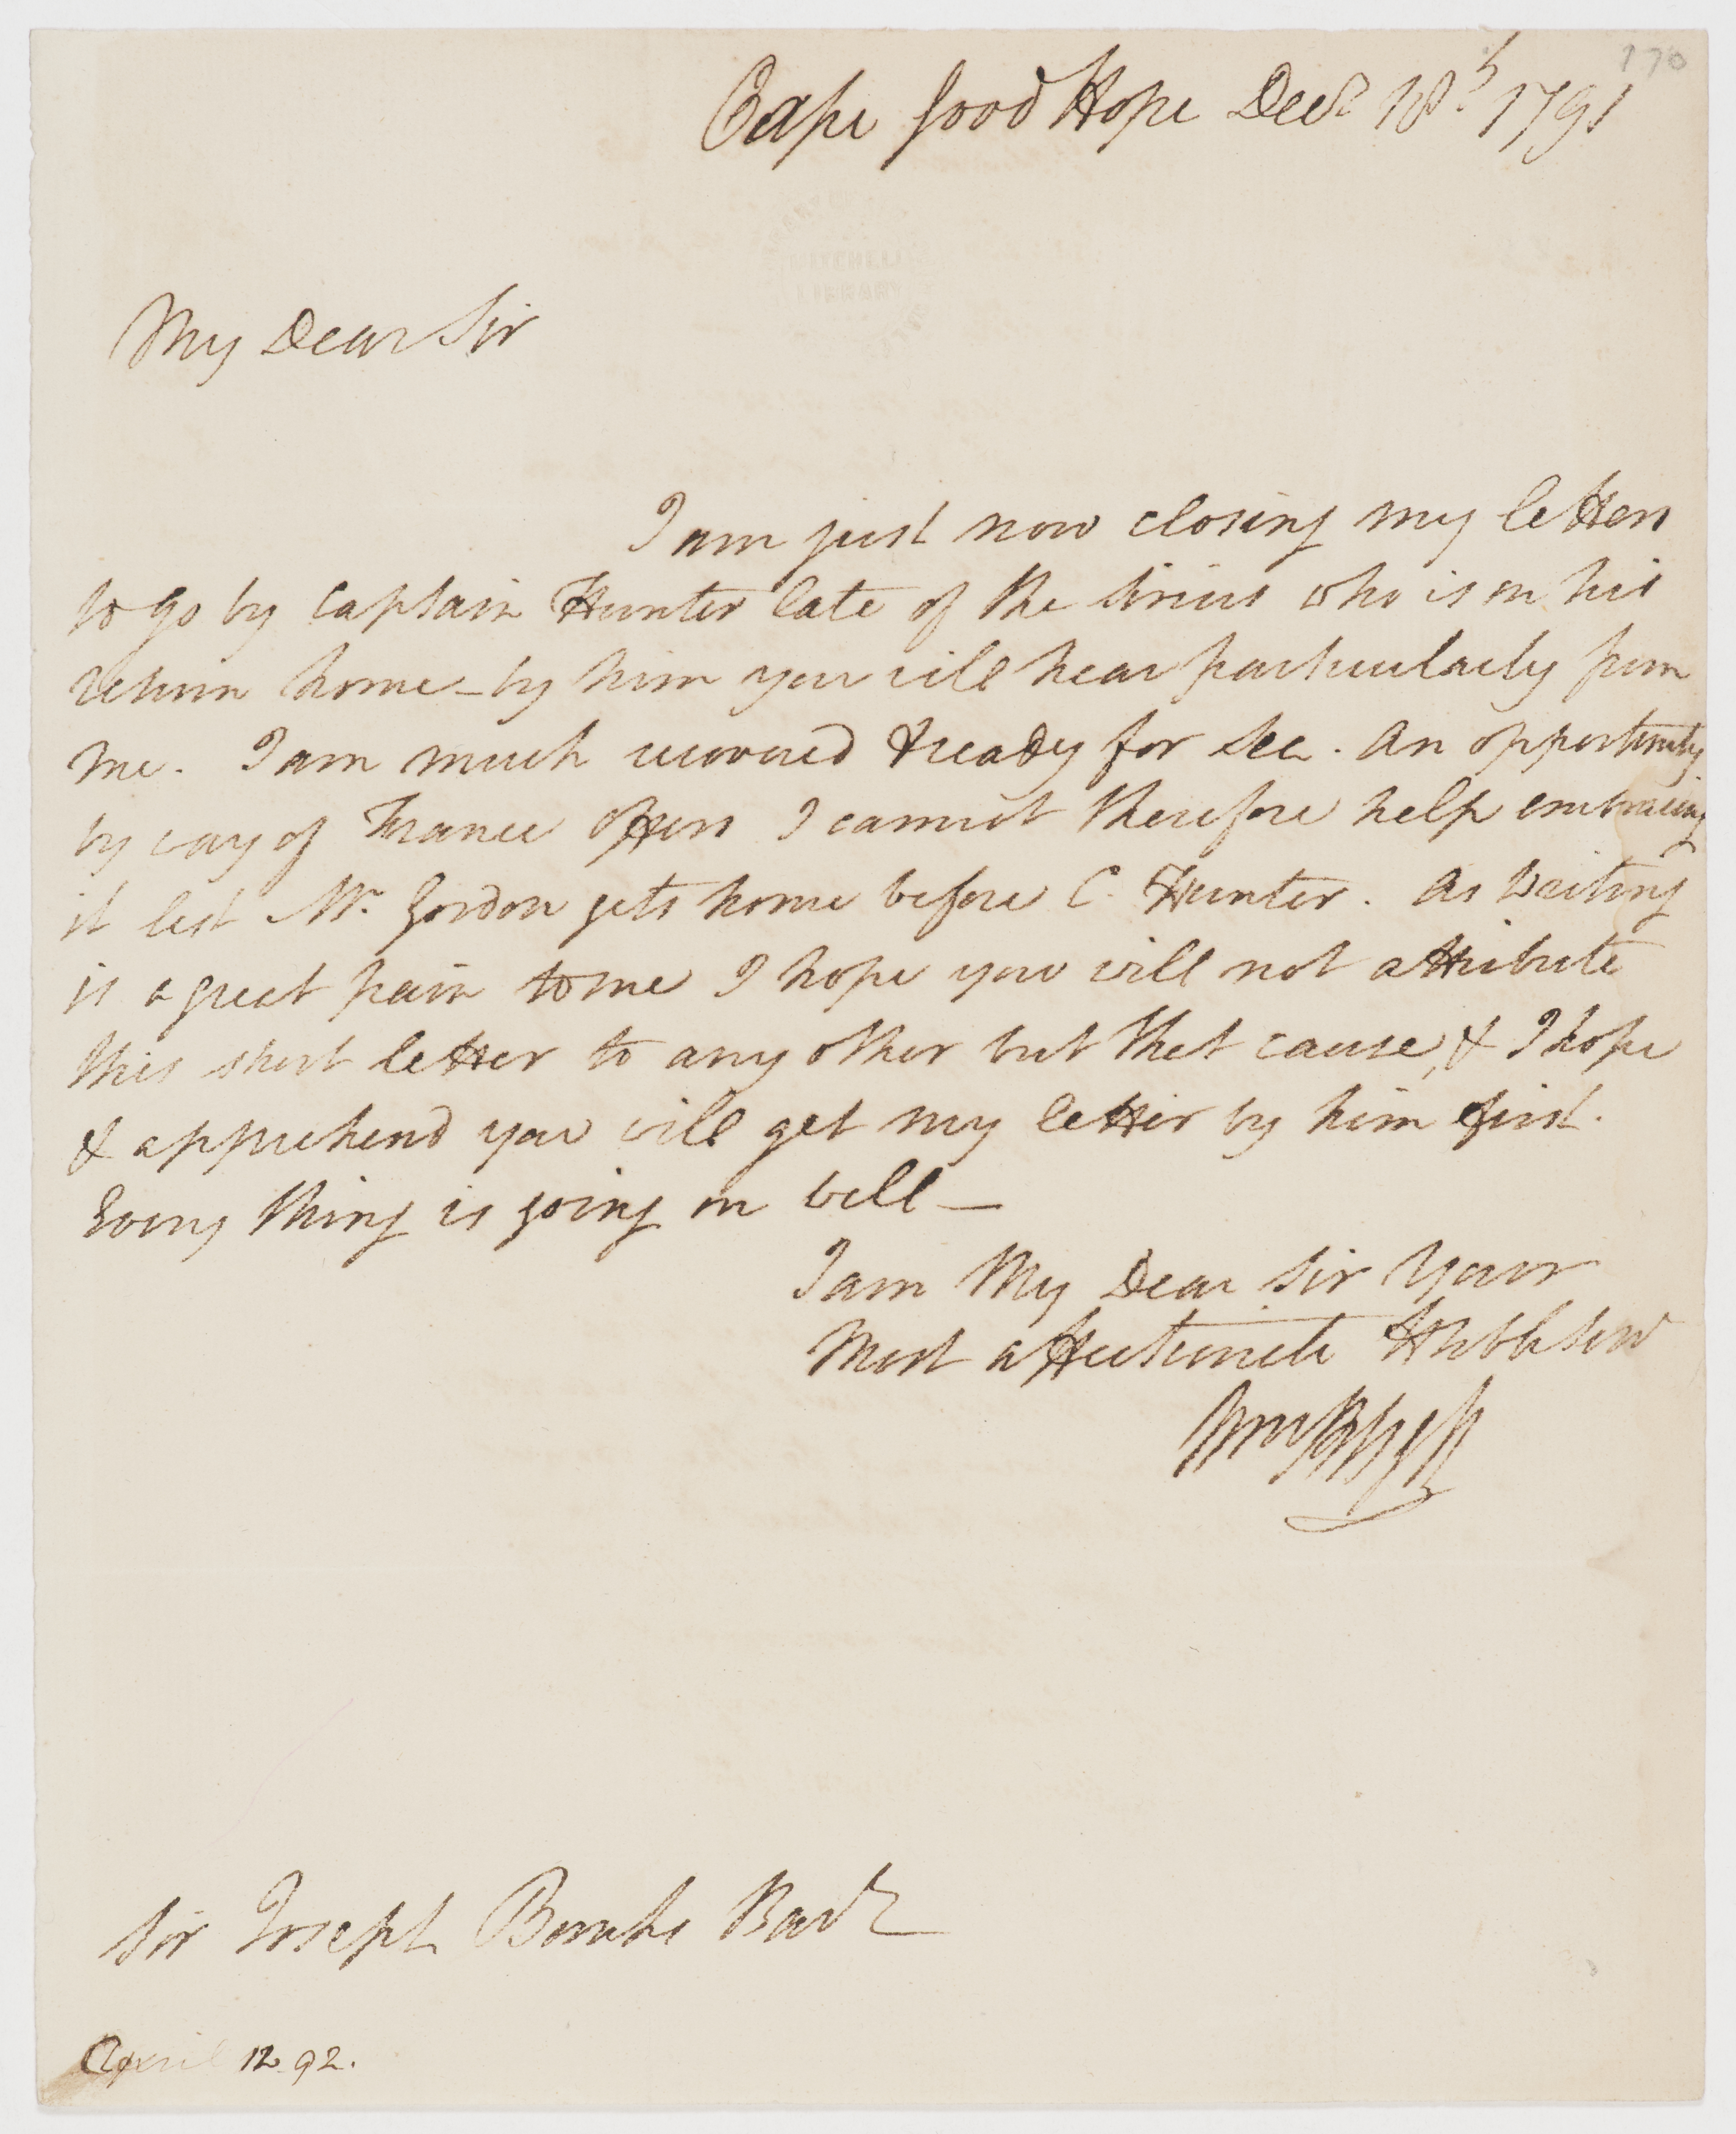 170
Cape Good Hope Decr 18th 1791
MITCHELL
LIBRARY
My Dear Sir
I am just now closing my letters
to go by Captain Hunter late of the Sirius who is on his
return home – by him you will hear particularly from
me. I am much recovered & ready for Sea. An opportunity
by way of France offers I cannot therefore help embracing
it lest Mr. Gordon gets home before C. Hunter. As writing
is a great pain to me I hope you will not attribute
this short letter to any other but that cause, & I hope
& apprehend you will get my letter by him first.
Every thing is going on well –
I am My Dear Sir Your
Most affectionate Hble Serv
Wm Bligh
Sir Joseph Banks Bart
April 12 92.